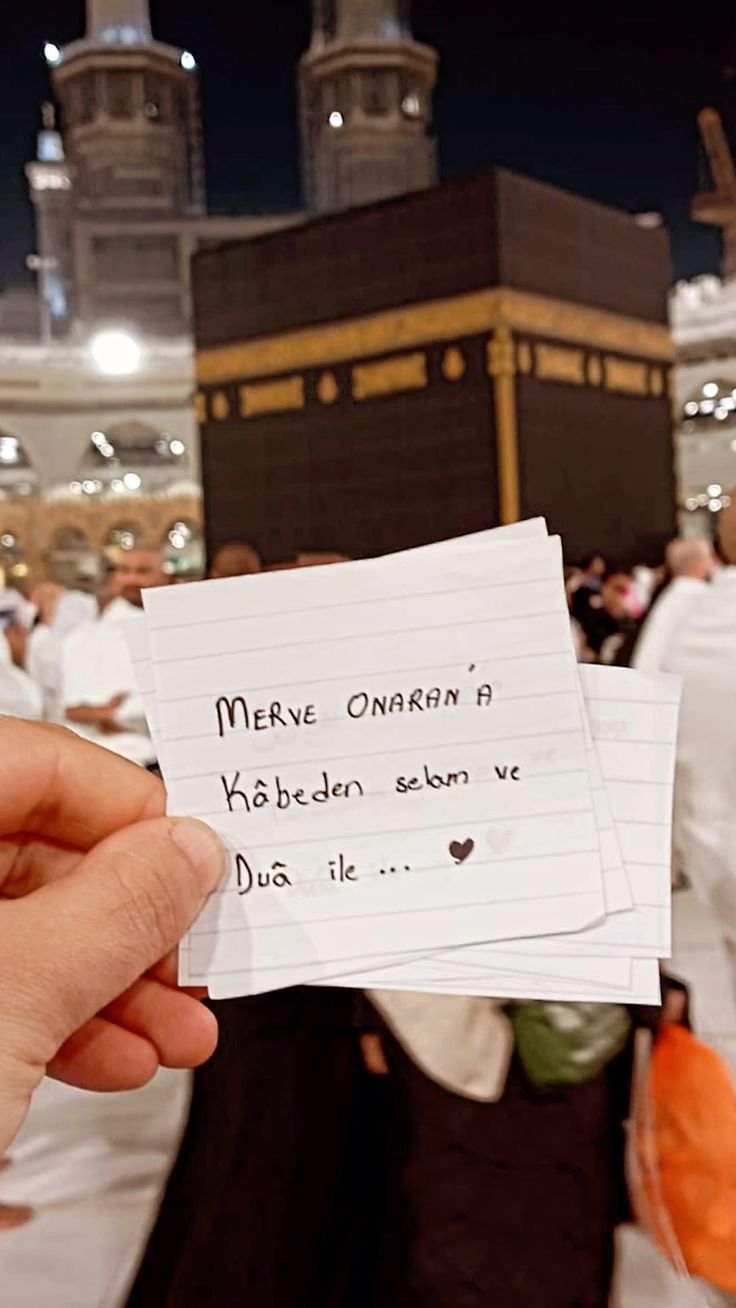 MERVE ONARAN'A
Kâbeden selam ve
Duâ ile ... ♥